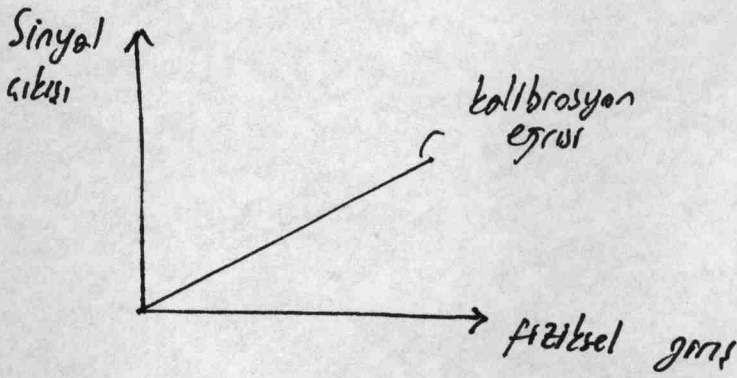 Sinyal
çıkışı
kalibrasyon
eğrisi
fiziksel giriş